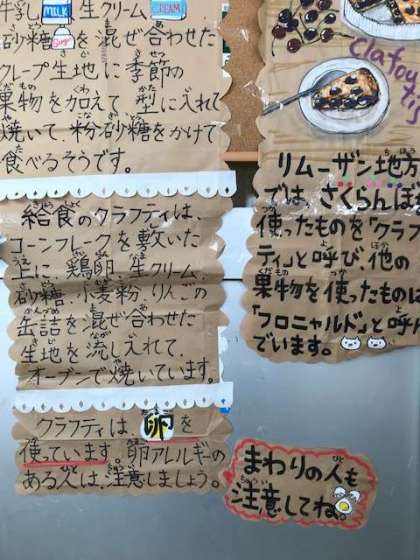 牛乳 MILK 生クリーム CREAM
砂糖 Sugar を混ぜ合わせた
クレープ生地に季節の
果物を加えて、型に入れて
焼いて、粉砂糖をかけて
食べるそうです。
給食のクラフティは、
コーンフレークを敷いた
上に、鶏卵、生クリーム、
砂糖、小麦粉、りんごの
缶詰を混ぜ合わせた
生地を流し入れて、
オーブンで焼いています。
クラフティは卵を
使っています。卵アレルギーの
ある人は、注意しましょう。
clafou
tis
リムーザン地方
では、さくらんぼ
使ったものを「クラフ
ティ」と呼び、他の
果物を使ったものは
「フロニャルド」と呼
でいます。
まわりの人も
注意してね。